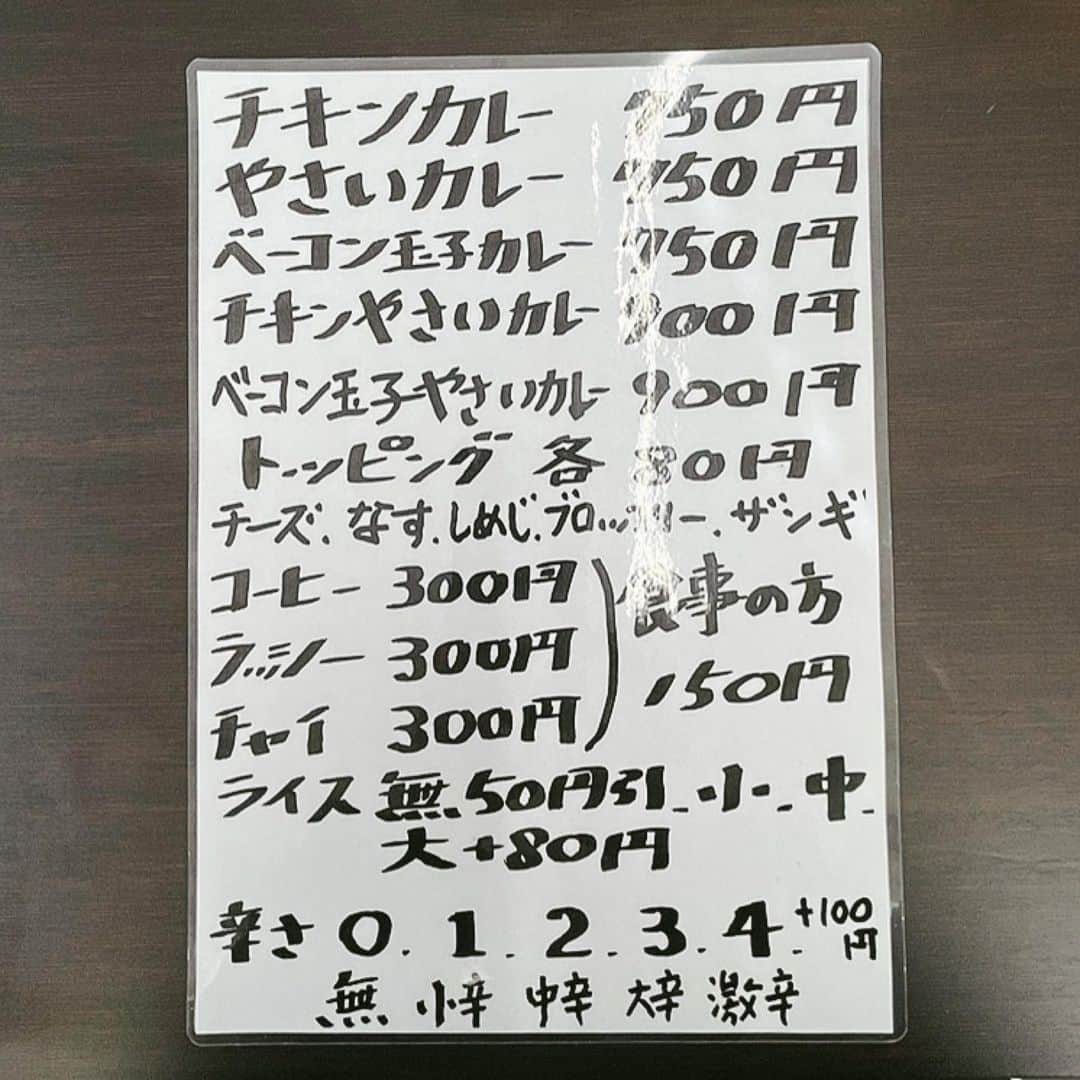 チキンカレー 750円
やさいカレー 750円
ベーコン玉子カレー 750円
チキンやさいカレー 900円
ベーコン玉子やさいカレー 900円
トッピング 各 80円
チーズ、なす、しめじ、ブロッコリー、ザンギ
コーヒー 300円
ラッシー 300円
チャイ 300円
食事の方
150円
ライス 無.50円引.小.中.
大+80円
辛さ 0.1.2.3.4.+100円
無 小辛 中辛 大辛 激辛